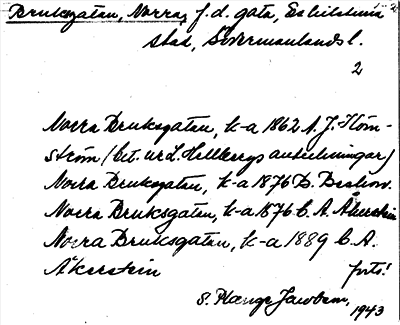 Bruksgatan, Norra, f.d. gata, Eskilstuna
stad, Södermanlands l.
2
Norra Bruksgatan, k-a 1862 A. J. Hôm-
ström (bet. urd. Hellbergs anteckningar)
Norra Bruksgatan, k-a 1876 D.
Norra Bruksgatan, k-a 1876 C. A. Åkerstein
Norra Bruksgatan, k-a 1889 C. A.
Åkerstein forts!
S. Plange Jacobson, 1943